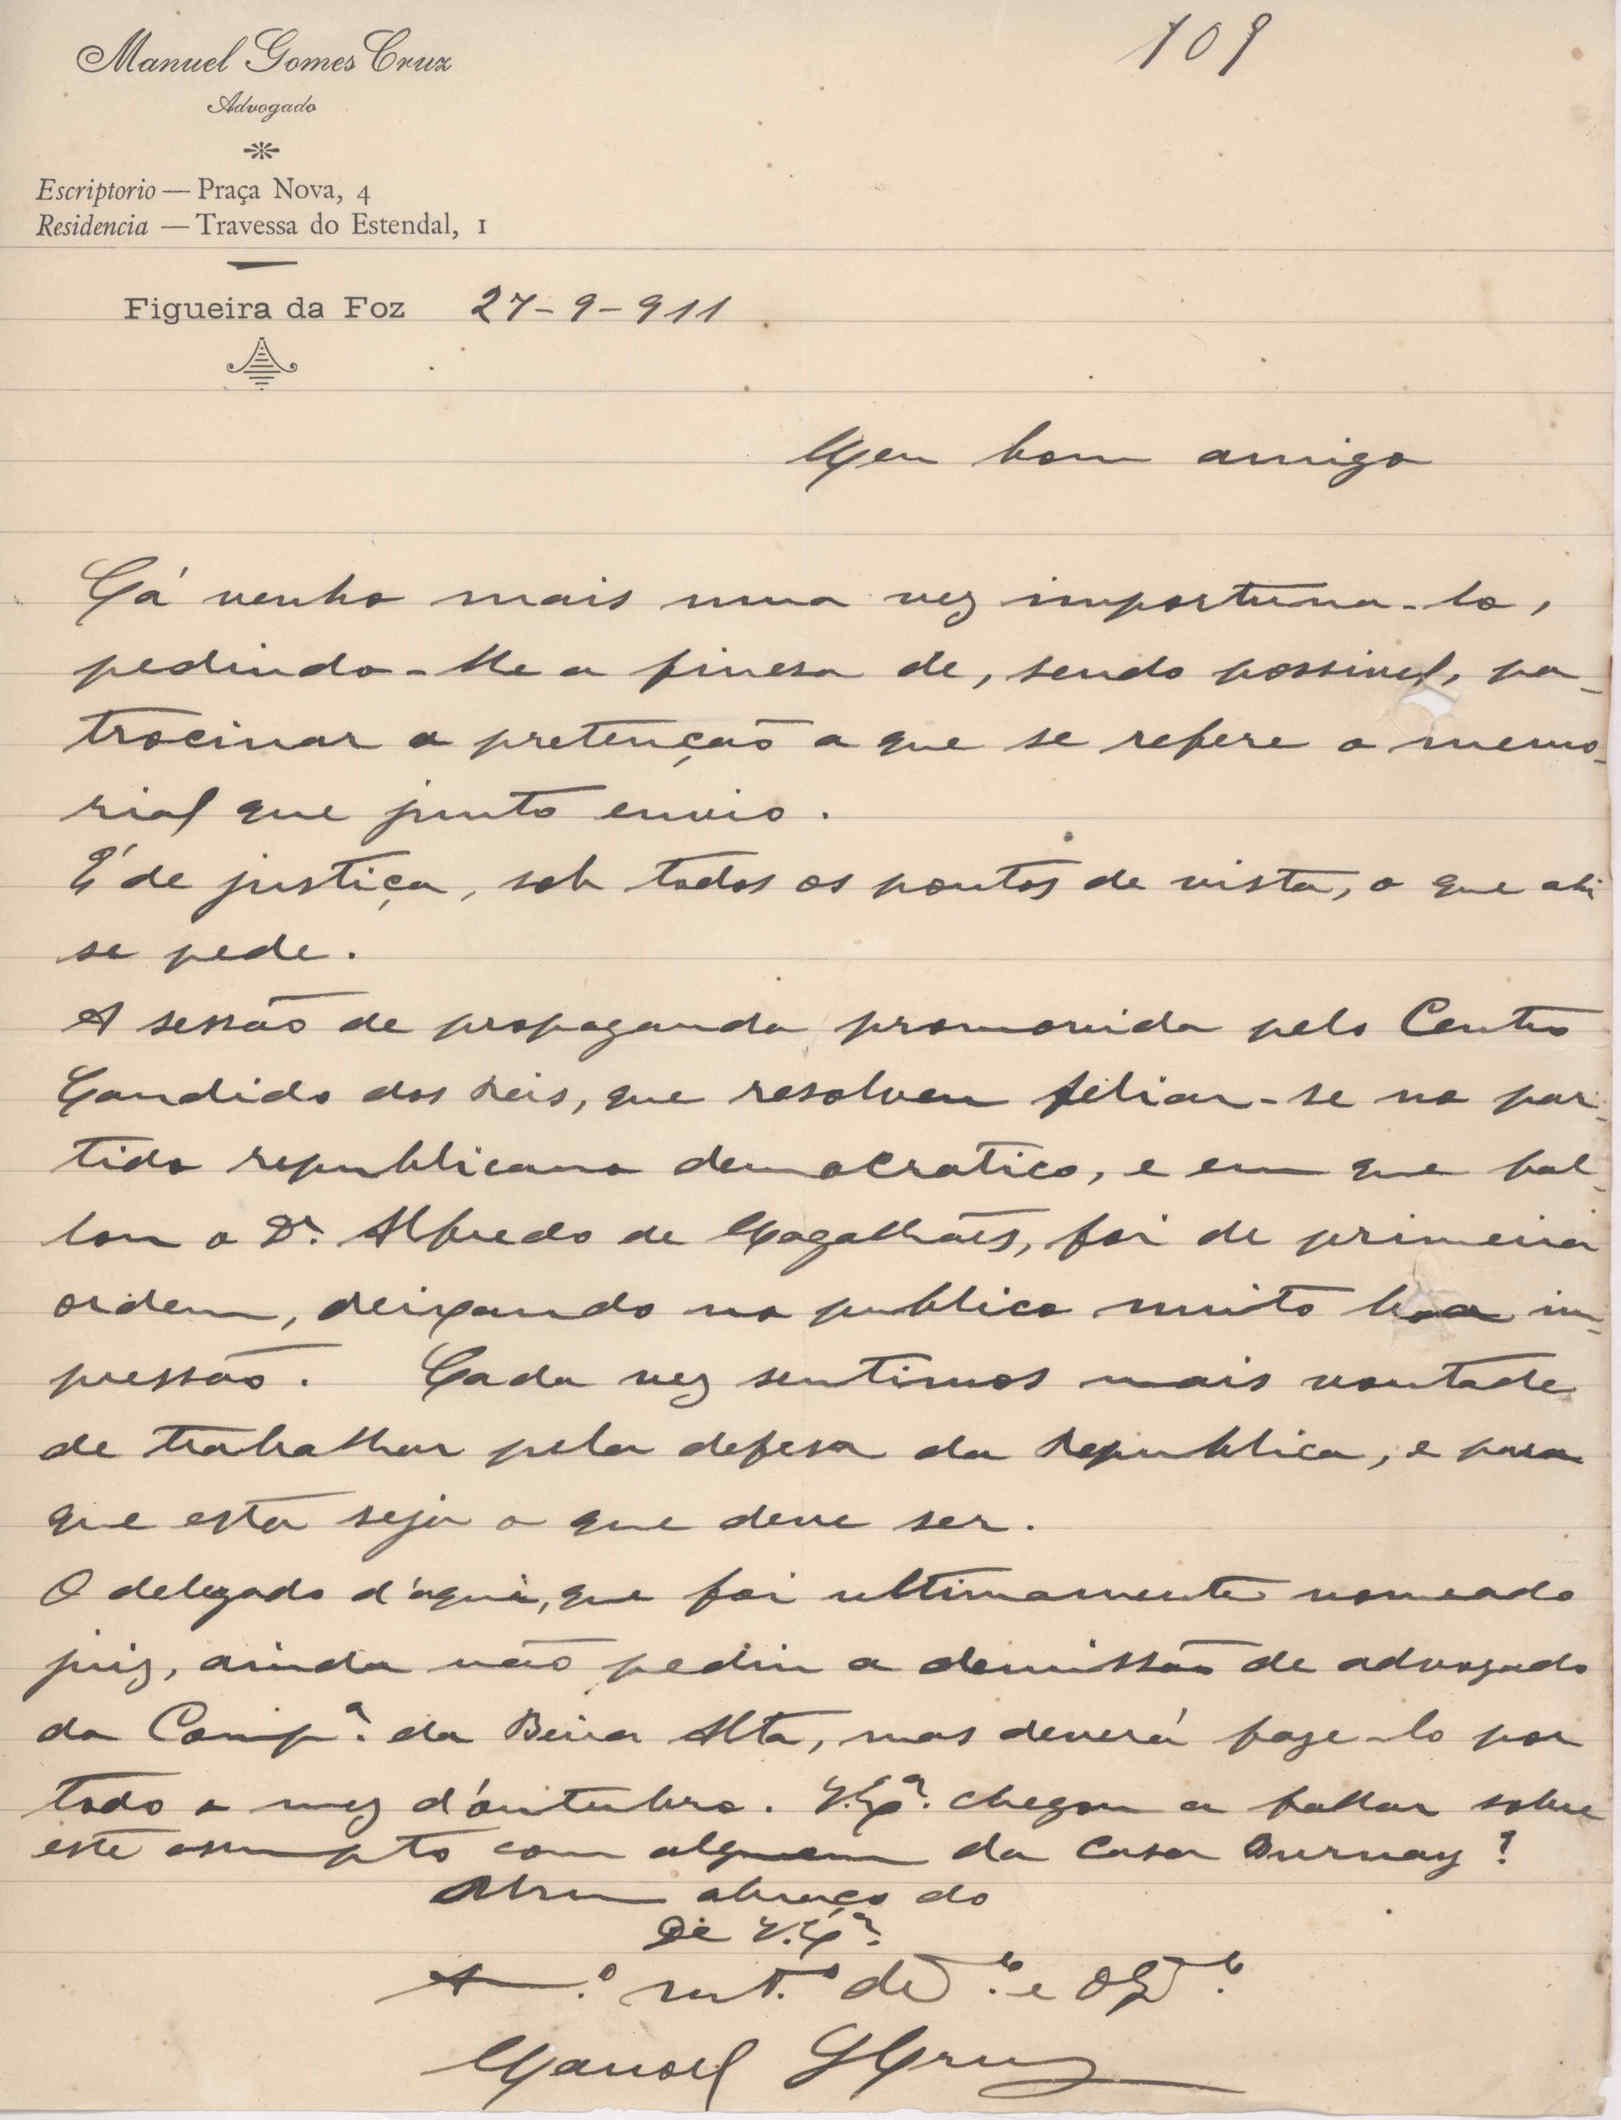 109
Manuel Gomes Cruz
Advogado
Escriptorio — Praça Nova, 4
Residencia — Travessa do Estendal, 1
Figueira da Foz 27-9-911
Meu bom amigo
Cá venho mais uma vez importuna-lo,
pedindo-lhe a finesa de, sendo possivel, pa-
trocinar a pretenção a que se refere o memo-
rial que junto envio.
É de justiça, sob todos os pontos de vista, o que ahi
se pede.
A sessão de propaganda promovida pelo Centro
Candido dos Reis, que resolveu filiar-se no par-
tido republicano democratico, e em que fal-
lou o Dr. Alfredo de Magalhães, foi de primeira
ordem, deixando no publico muito boa im-
pressão. Cada vez sentimos mais vontade
de trabalhar pela defesa da Republica, e para
que esta seja o que deve ser.
O delegado d'aqui, que foi ultimamente nomeado
juiz, ainda não pediu a demissão de advogado
da Comp.ª da Beira Alta, mas deverá faze-lo por
todo o mez d'outubro. V. Ex.ª chegou a fallar sobre
este assumpto com alguem da Casa Burnay?
abraço do
De V. Ex.ª
Am.º mt.º ded.º e obg.º
Manoel GCruz